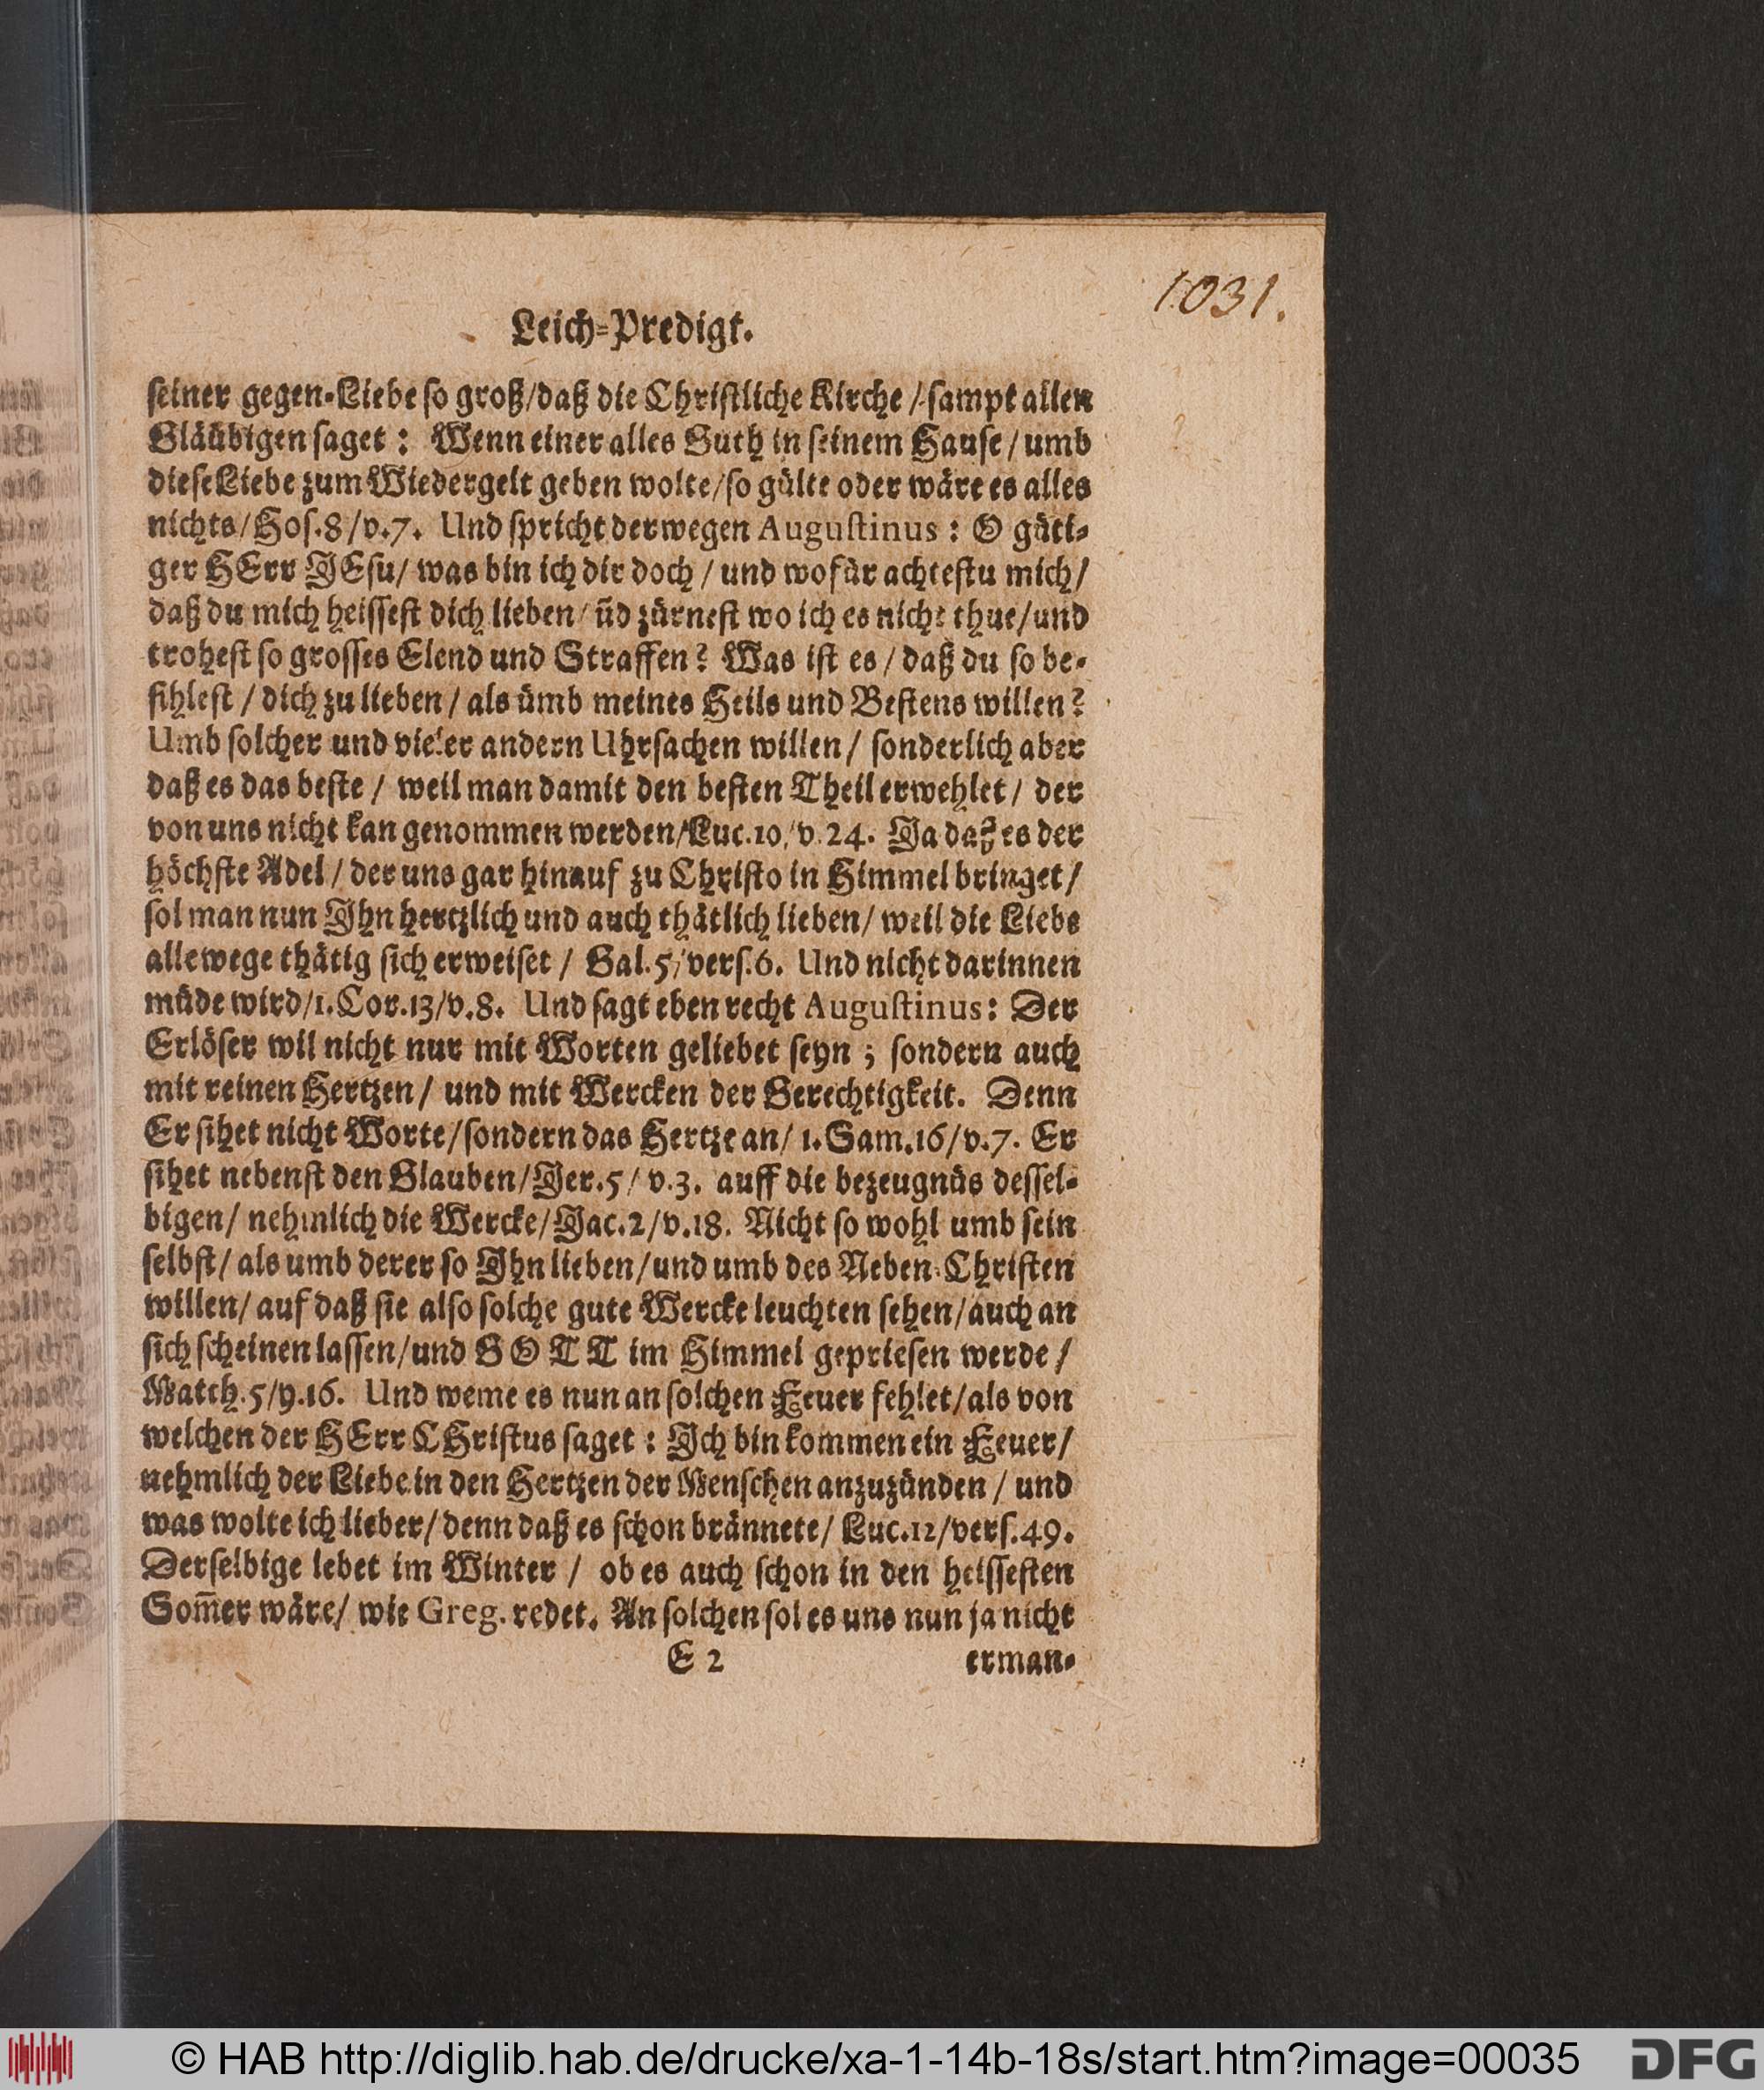 1031.
Leich-Predigt.
ſeiner gegen-Liebe ſo groß/daß die Chriſtliche Kirche / ſampt allen
Gläubigen ſaget : Wenn einer alles Guth in ſeinem Hauſe / umb
dieſe Liebe zum Wiedergelt geben wolte/ſo gülte oder wäre es alles
nichts/Hoſ.8/v.7. Und ſpricht derwegen Auguſtinus : O güti-
ger HErr JEſu/ was bin ich dir doch / und wofür achteſtu mich/
daß du mich heiſſeſt dich lieben/ uͤd zürneſt wo ich es nicht thue/und
troheſt ſo groſſes Elend und Straffen? Was iſt es / daß du ſo be-
fihleſt / dich zu lieben / als ümb meines Heils und Beſtens willen?
Umb ſolcher und vieler andern Uhrſachen willen/ ſonderlich aber
daß es das beſte / weil man damit den beſten Theil erwehlet / der
von uns nicht kan genommen werden/Luc.10/v.24. Ja daß es der
höchſte Adel / der uns gar hinauf zu Chriſto in Himmel bringet/
ſol man nun Ihn hertzlich und auch thätlich lieben/ weil die Liebe
allewege thätig ſich erweiſet / Gal.5/verſ.6. Und nicht darinnen
müde wird/1.Cor.13/v.8. Und ſagt eben recht Auguſtinus: Der
Erlöſer wil nicht nur mit Worten geliebet ſeyn ; ſondern auch
mit reinen Hertzen/ und mit Wercken der Gerechtigkeit. Denn
Er ſihet nicht Worte/ſondern das Hertze an/ 1.Sam.16/v.7. Er
ſihet nebenſt den Glauben/Jer.5/ v.3. auff die bezeugnüs deſſel-
bigen/ nehmlich die Wercke/Jac.2/v.18. Nicht ſo wohl umb ſein
ſelbſt/ als umb derer ſo Ihn lieben/und umb des Neben-Chriſten
willen/ auf daß ſie alſo ſolche gute Wercke leuchten ſehen/auch an
ſich ſcheinen laſſen/und GOTT im Himmel geprieſen werde /
Matth.5/v.16. Und weme es nun an ſolchen Feuer fehlet/als von
welchen der HErr CHriſtus ſaget : Ich bin kommen ein Feuer/
nehmlich der Liebe in den Hertzen der Menſchen anzuzünden / und
was wolte ich lieber/ denn daß es ſchon brännete/ Luc.12/verſ.49.
Derſelbige lebet im Winter / ob es auch ſchon in den heiſſeſten
Som̄er wäre/ wie Greg. redet. An ſolchen ſol es uns nun ja nicht
E 2 erman-
© HAB http://diglib.hab.de/drucke/xa-1-14b-18s/start.htm?image=00035
DFG